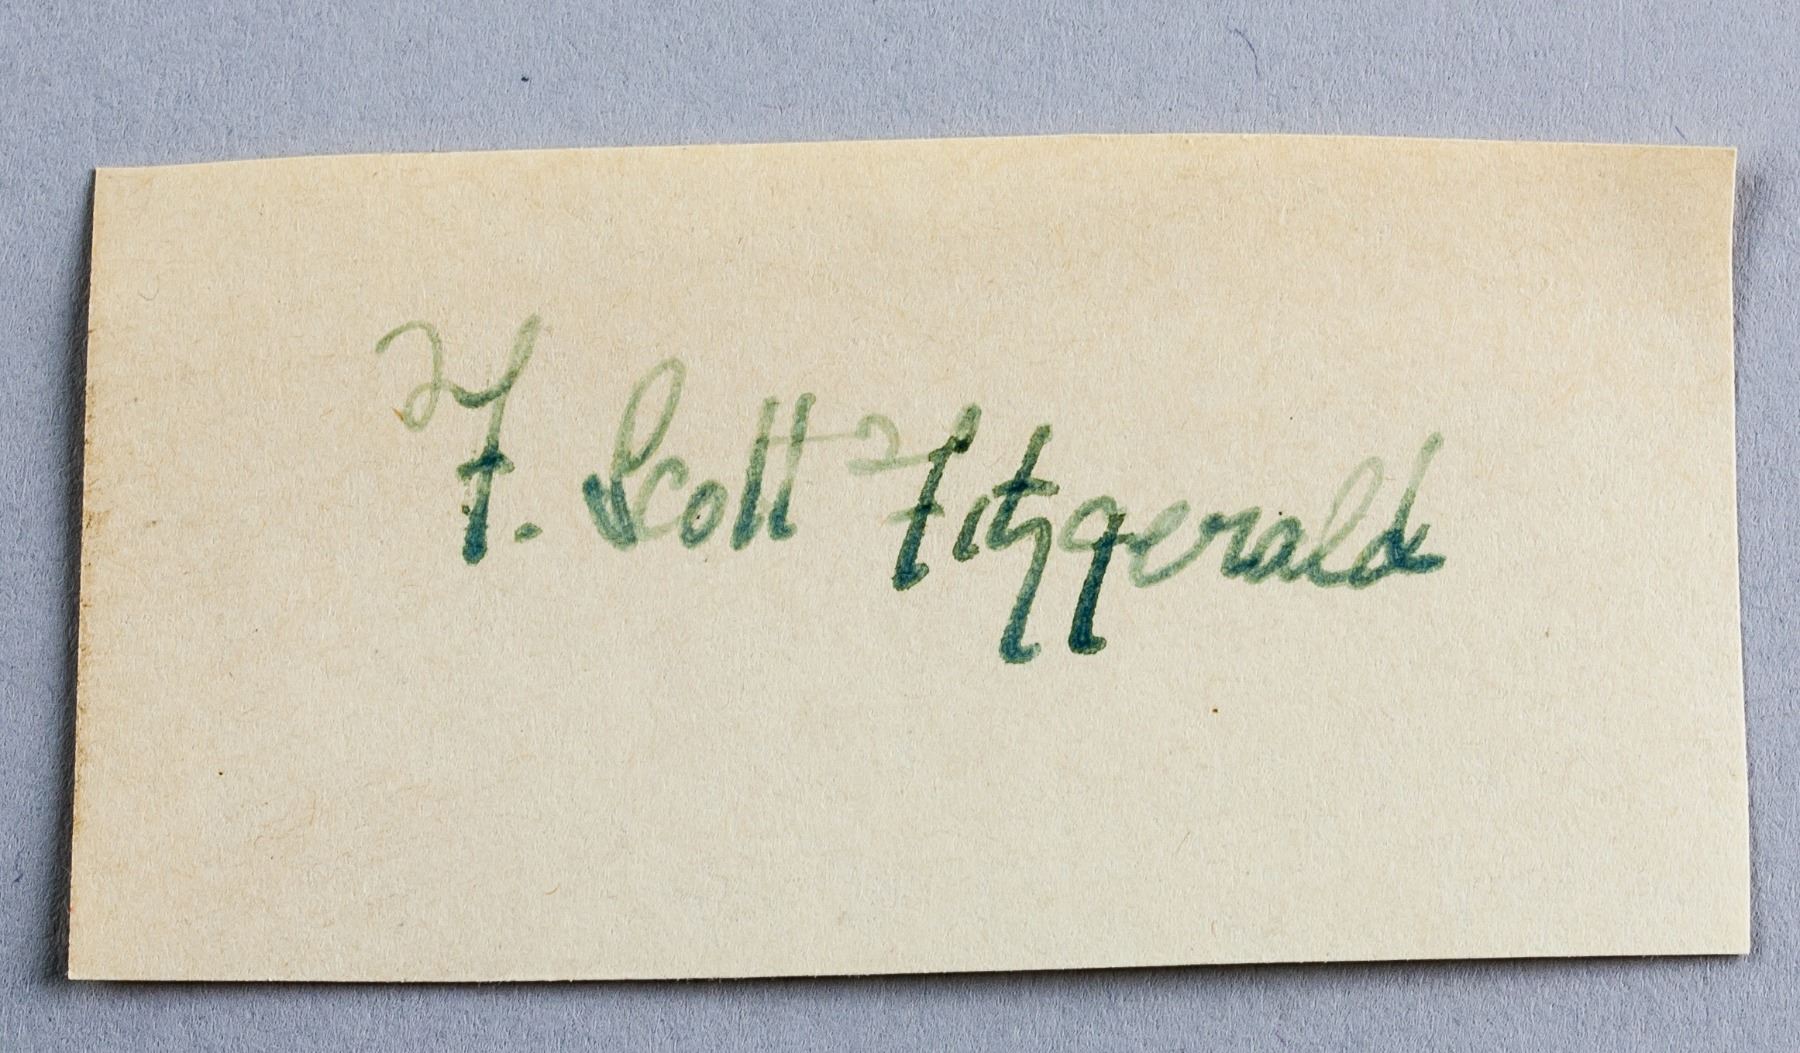 F. Scott Fitzgerald